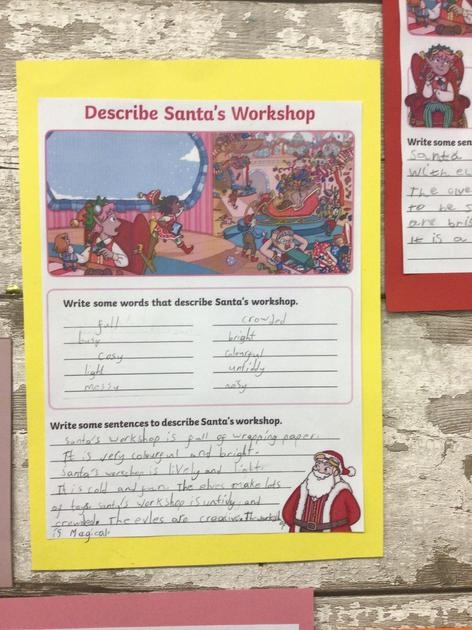 Describe Santa's Workshop
Write some words that describe Santa's workshop.
full crowded
busy bright
cosy colourful
light untiddy
messy nosy
Write some sentences to describe Santa's workshop.
Santa's workshop is full of wrapping paper.
It is very colourful and bright.
Santa's workshop is lively and light.
It is cold and The elves make lots
of toys Santa's workshop is untidy and
crowded. The evles are creative. The
is Magical.
Write some sen
Santa
with el
The
to be s
are
It is a